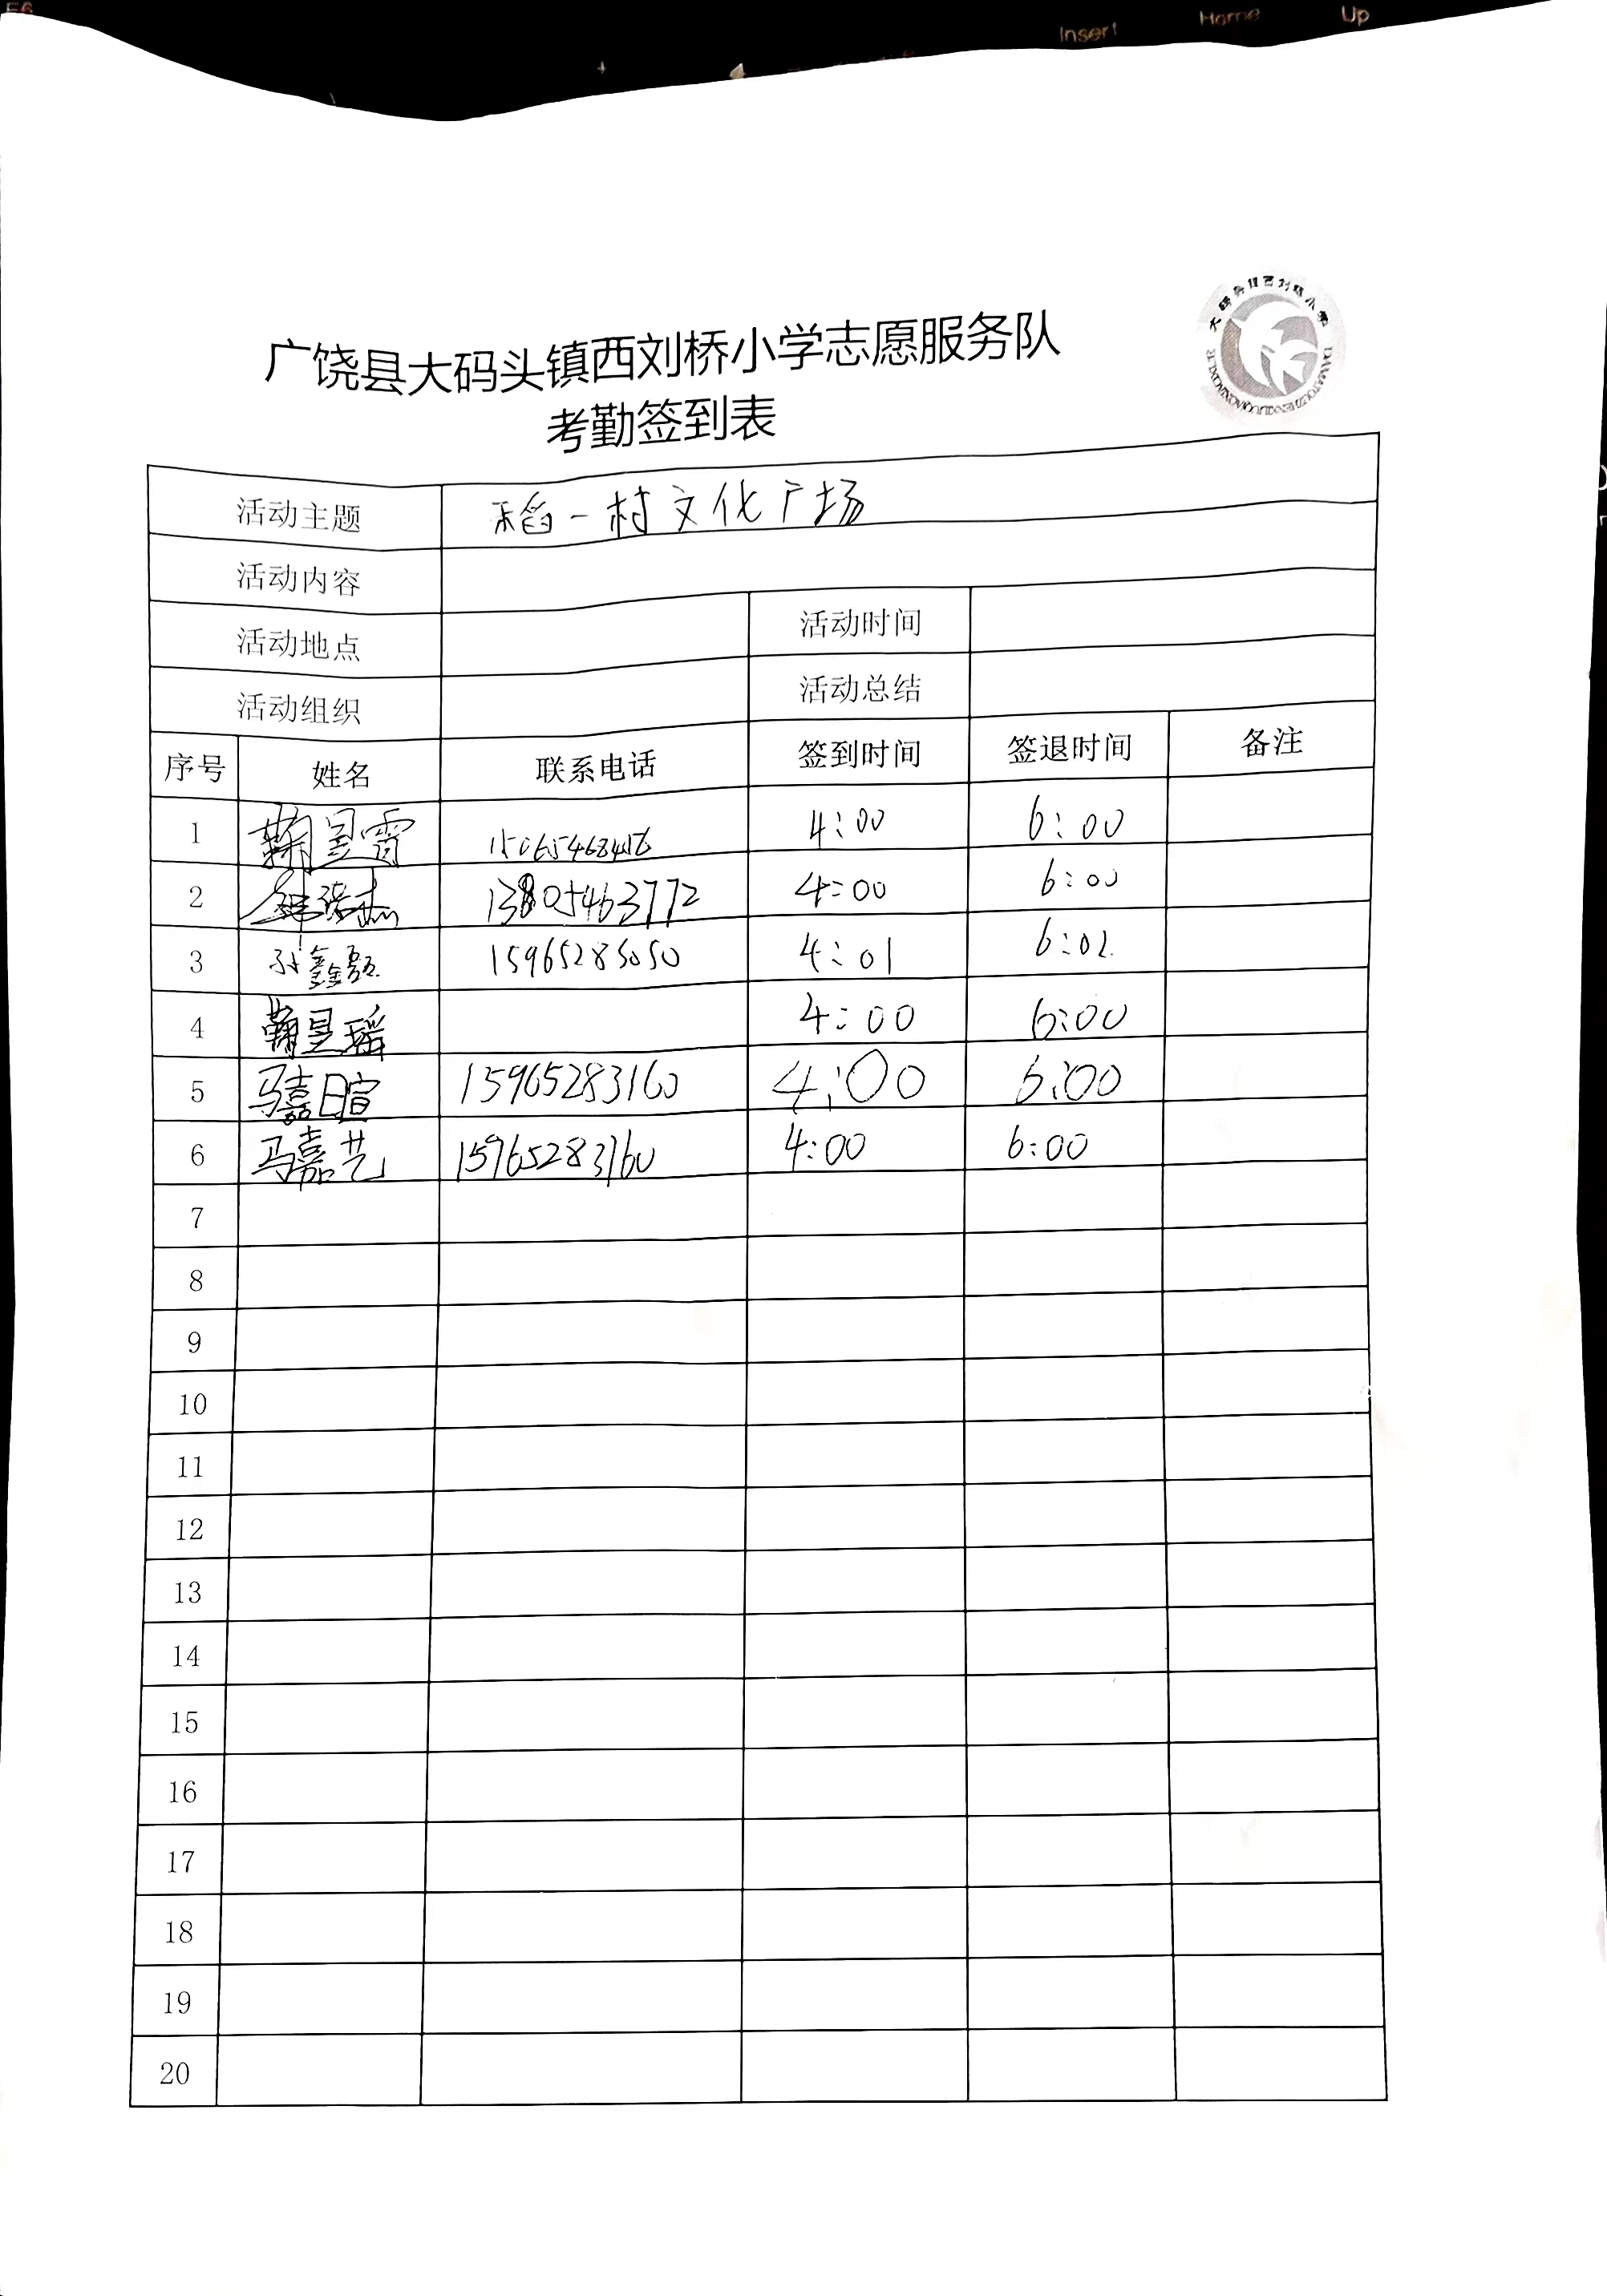 Insert Home Up
广饶县大码头镇西刘桥小学志愿服务队
考勤签到表
活动主题 稻一村文化广场
活动内容
活动地点 活动时间
活动组织 活动总结
序号 姓名 联系电话 签到时间 签退时间 备注
1 鞠昱霄 4:00 6:00
2 13805463772 4:00 6:00
3 15965285050 4:01 6:02
4 鞠昱瑶 4:00 6:00
5 马嘉暄 15965283160 4:00 6:00
6 马嘉艺 15965283160 4:00 6:00
7
8
9
10
11
12
13
14
15
16
17
18
19
20